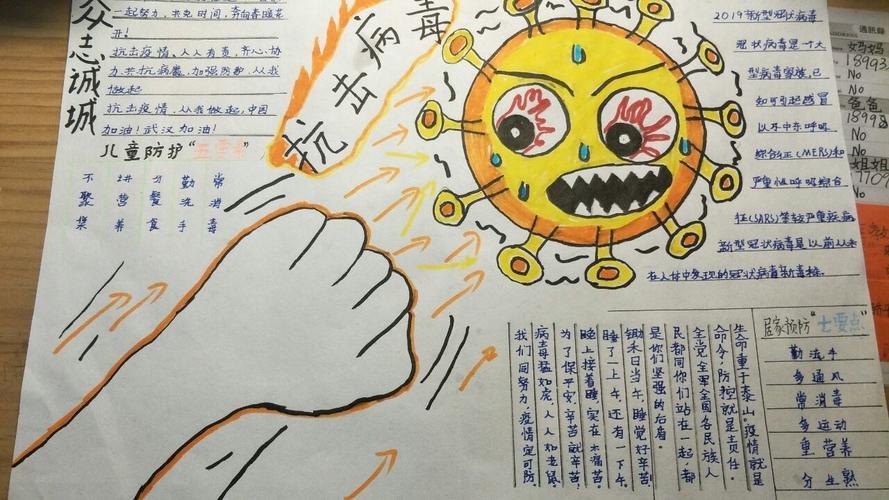 众志诚城
一起努力,共克时间,奔向春暖花
开!
抗击疫情、人人有责、齐心协
力、共抗病毒、加强防护、从我
做起
抗击疫情、从我做起,中国
加油!武汉加油!
儿童防护“五要素”
不聚集
讲营养
分餐食
勤洗手
常消毒
抗击病毒
2019新型冠状病毒
冠状病毒是一个大
型病毒家族,已
知可引起感冒
以及中东呼吸
综合征(MERS)和
严重性呼吸综合
征(SARS)等较严重疾病
新型冠状病毒是以前从未
在人体中发现的冠状病毒新毒株.
生命重于泰山。疫情就是
命令,防控就是责任。
全党全军全国各民族人
民都同你们站在一起,都
是你们坚强的后盾。
锄禾日当午,睡觉好辛苦,
睡了一上午,还有一下午,
晚上接着睡,实在太痛苦,
为了保平安,辛苦就辛苦,
病毒猛如虎,人人如老鼠,
我们同努力,疫情定可防
居家预防“七要点”
勤洗手
多通风
常消毒
多运动
重营养
分生熟
通訊錄
ADDRESS
妈妈
18993
No
No
爸爸
1899
No
No
姐姐
No